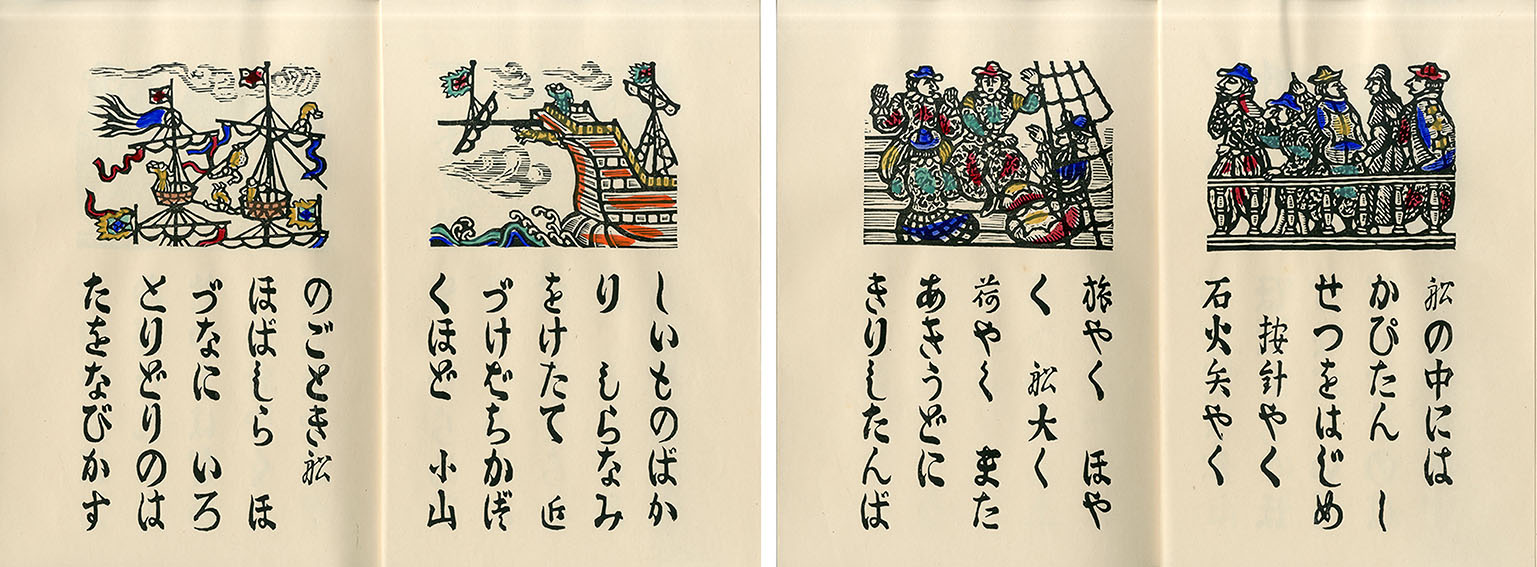 しいものばか
り しらなみ
をけたて 近
づけばちかづ
くほど 小山
のごとき舩
ほばしら ほ
づなに いろ
とりどりのは
たをなびかす
舩の中には
かぴたん し
せつをはじめ
按針やく
石火矢やく
旅やく ほや
く 舩大く
荷やく また
あきうどに
きりしたんば